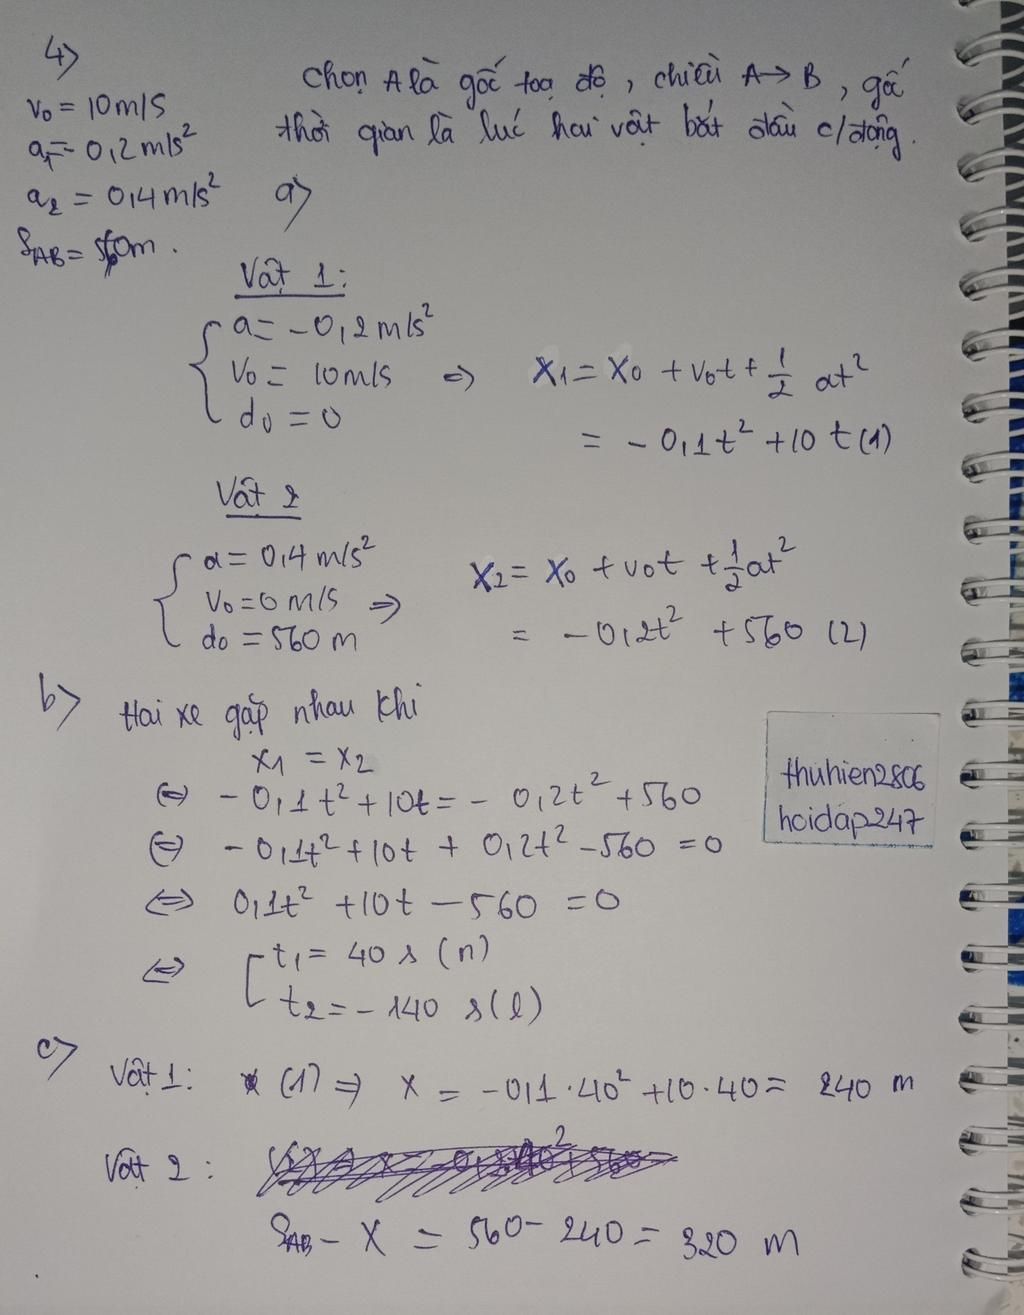 4)
v₀ = 10m/s
a₁ = 0,2 m/s²
a₂ = 0,4 m/s²
S_AB = 560m.
Chọn A là gốc toạ độ, chiều A → B, gốc
thời gian là lúc hai vật bắt đầu c/động.
a)
Vật 1:
a = -0,2 m/s²
v₀ = 10m/s
d₀ = 0
=> X₁ = X₀ + v₀t + 1/2 at²
= - 0,1t² + 10 t (1)
Vật 2
a = 0,4 m/s²
v₀ = 0 m/s
d₀ = 560 m
=> X₂ = X₀ + v₀t + 1/2 at²
= - 0,2t² + 560 (2)
b) Hai xe gặp nhau khi
x₁ = x₂
<=> - 0,1t² + 10t = - 0,2t² + 560
<=> - 0,1t² + 10t + 0,2t² - 560 = 0
<=> 0,1t² + 10t - 560 = 0
<=> [ t₁ = 40 s (n)
t₂ = - 140 s (l)
thuhien2806
hoidap247
c) Vật 1: (1) => X = - 0,1 . 40² + 10 . 40 = 240 m
Vật 2 :
S_AB - X = 560 - 240 = 320 m